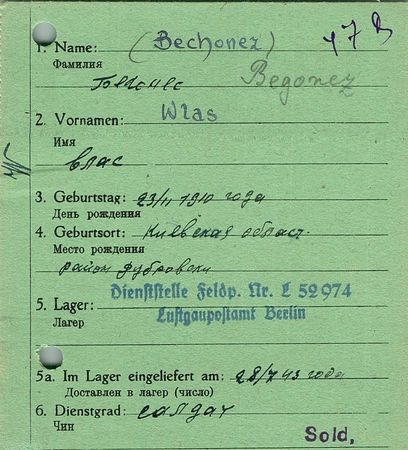 1. Name: (Bechonez) 47 B
Фамилия
Begonez
2. Vornamen: Wlas
Имя
влас
3. Geburtstag: 23/II 1910 года
День рождения
4. Geburtsort: Киевская област.
Место рождения
район дубровски
Dienststelle Feldp. Nr. L 52974
5. Lager: Luftgaupostamt Berlin
Лагер
5a. Im Lager eingeliefert am: 28/7 43 года
Доставлен в лагер (число)
6. Dienstgrad: салдат
Чин
Sold.